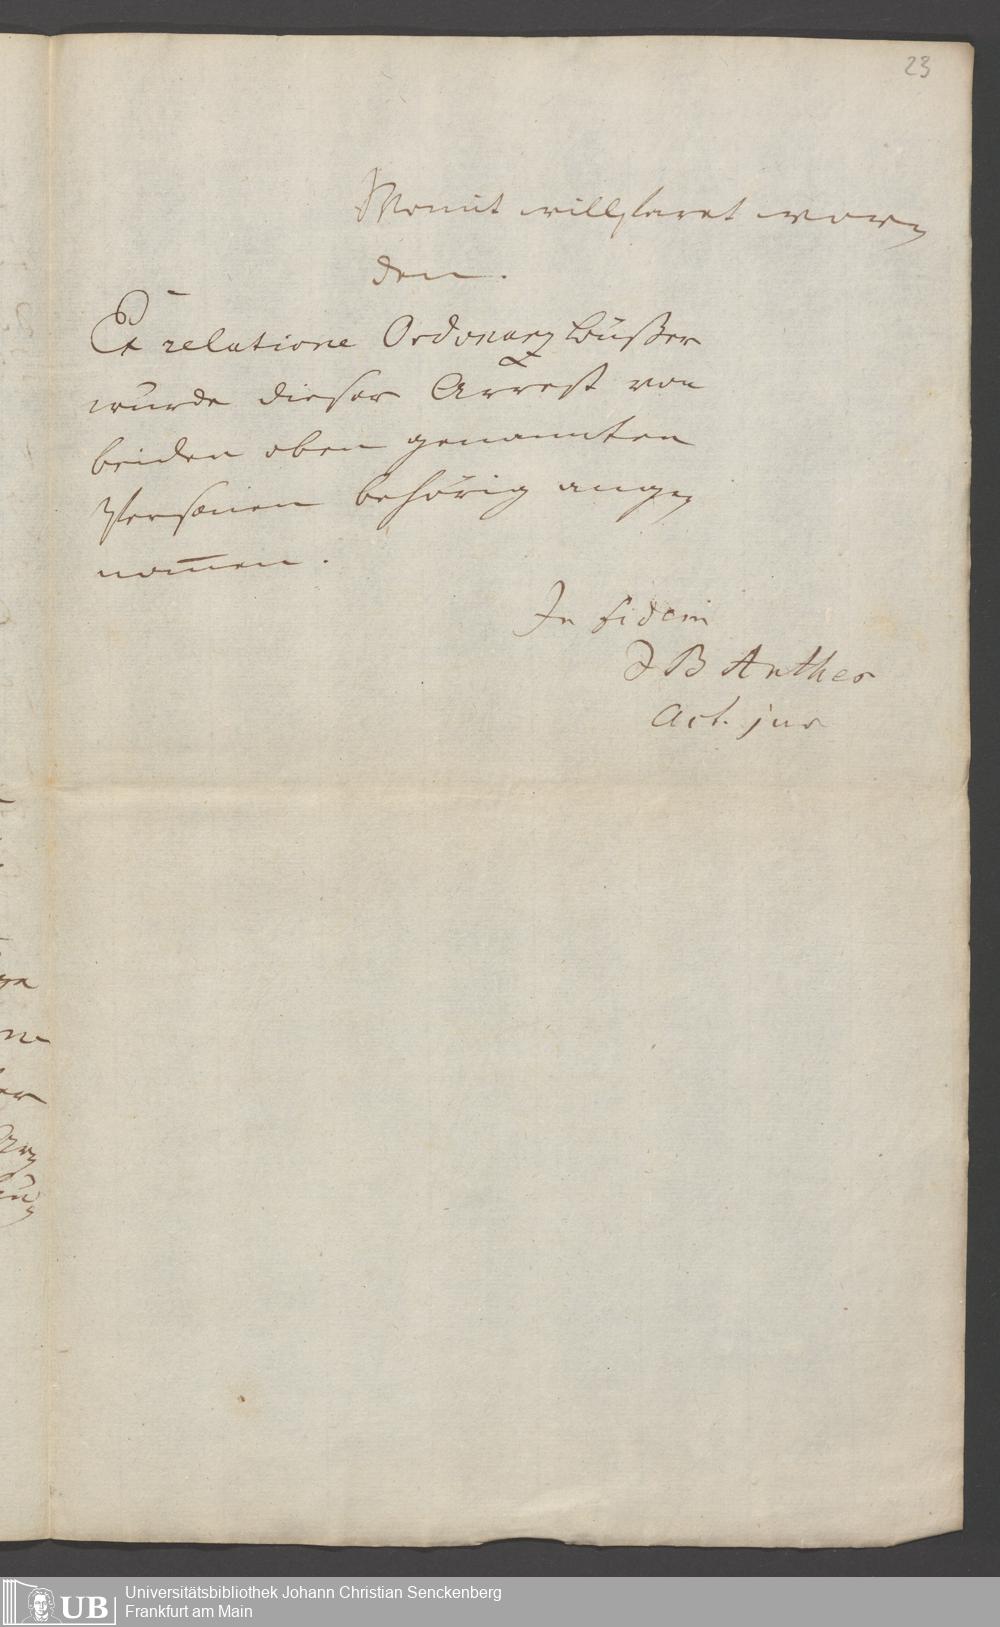 23
Womit willfahret wor-
den.
Ex relatione Ordonanz Büßer
wurde dieser Arrest von
beiden oben genannten
Personen behörig ange-
nom̅en.
In fidem
J B Anthes
Act. jur
Universitätsbibliothek Johann Christian Senckenberg
Frankfurt am Main
UB